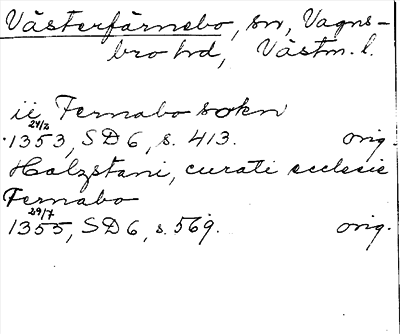 Västerfärnebo, sn, Vagns-
bro hd, Västm. l.
ii Fernabo sokn
24/2
1353, SD 6, s. 413. orig.
Halzstani, curati ecclesie
Fernabo
29/7
1355, SD 6, s. 569. orig.